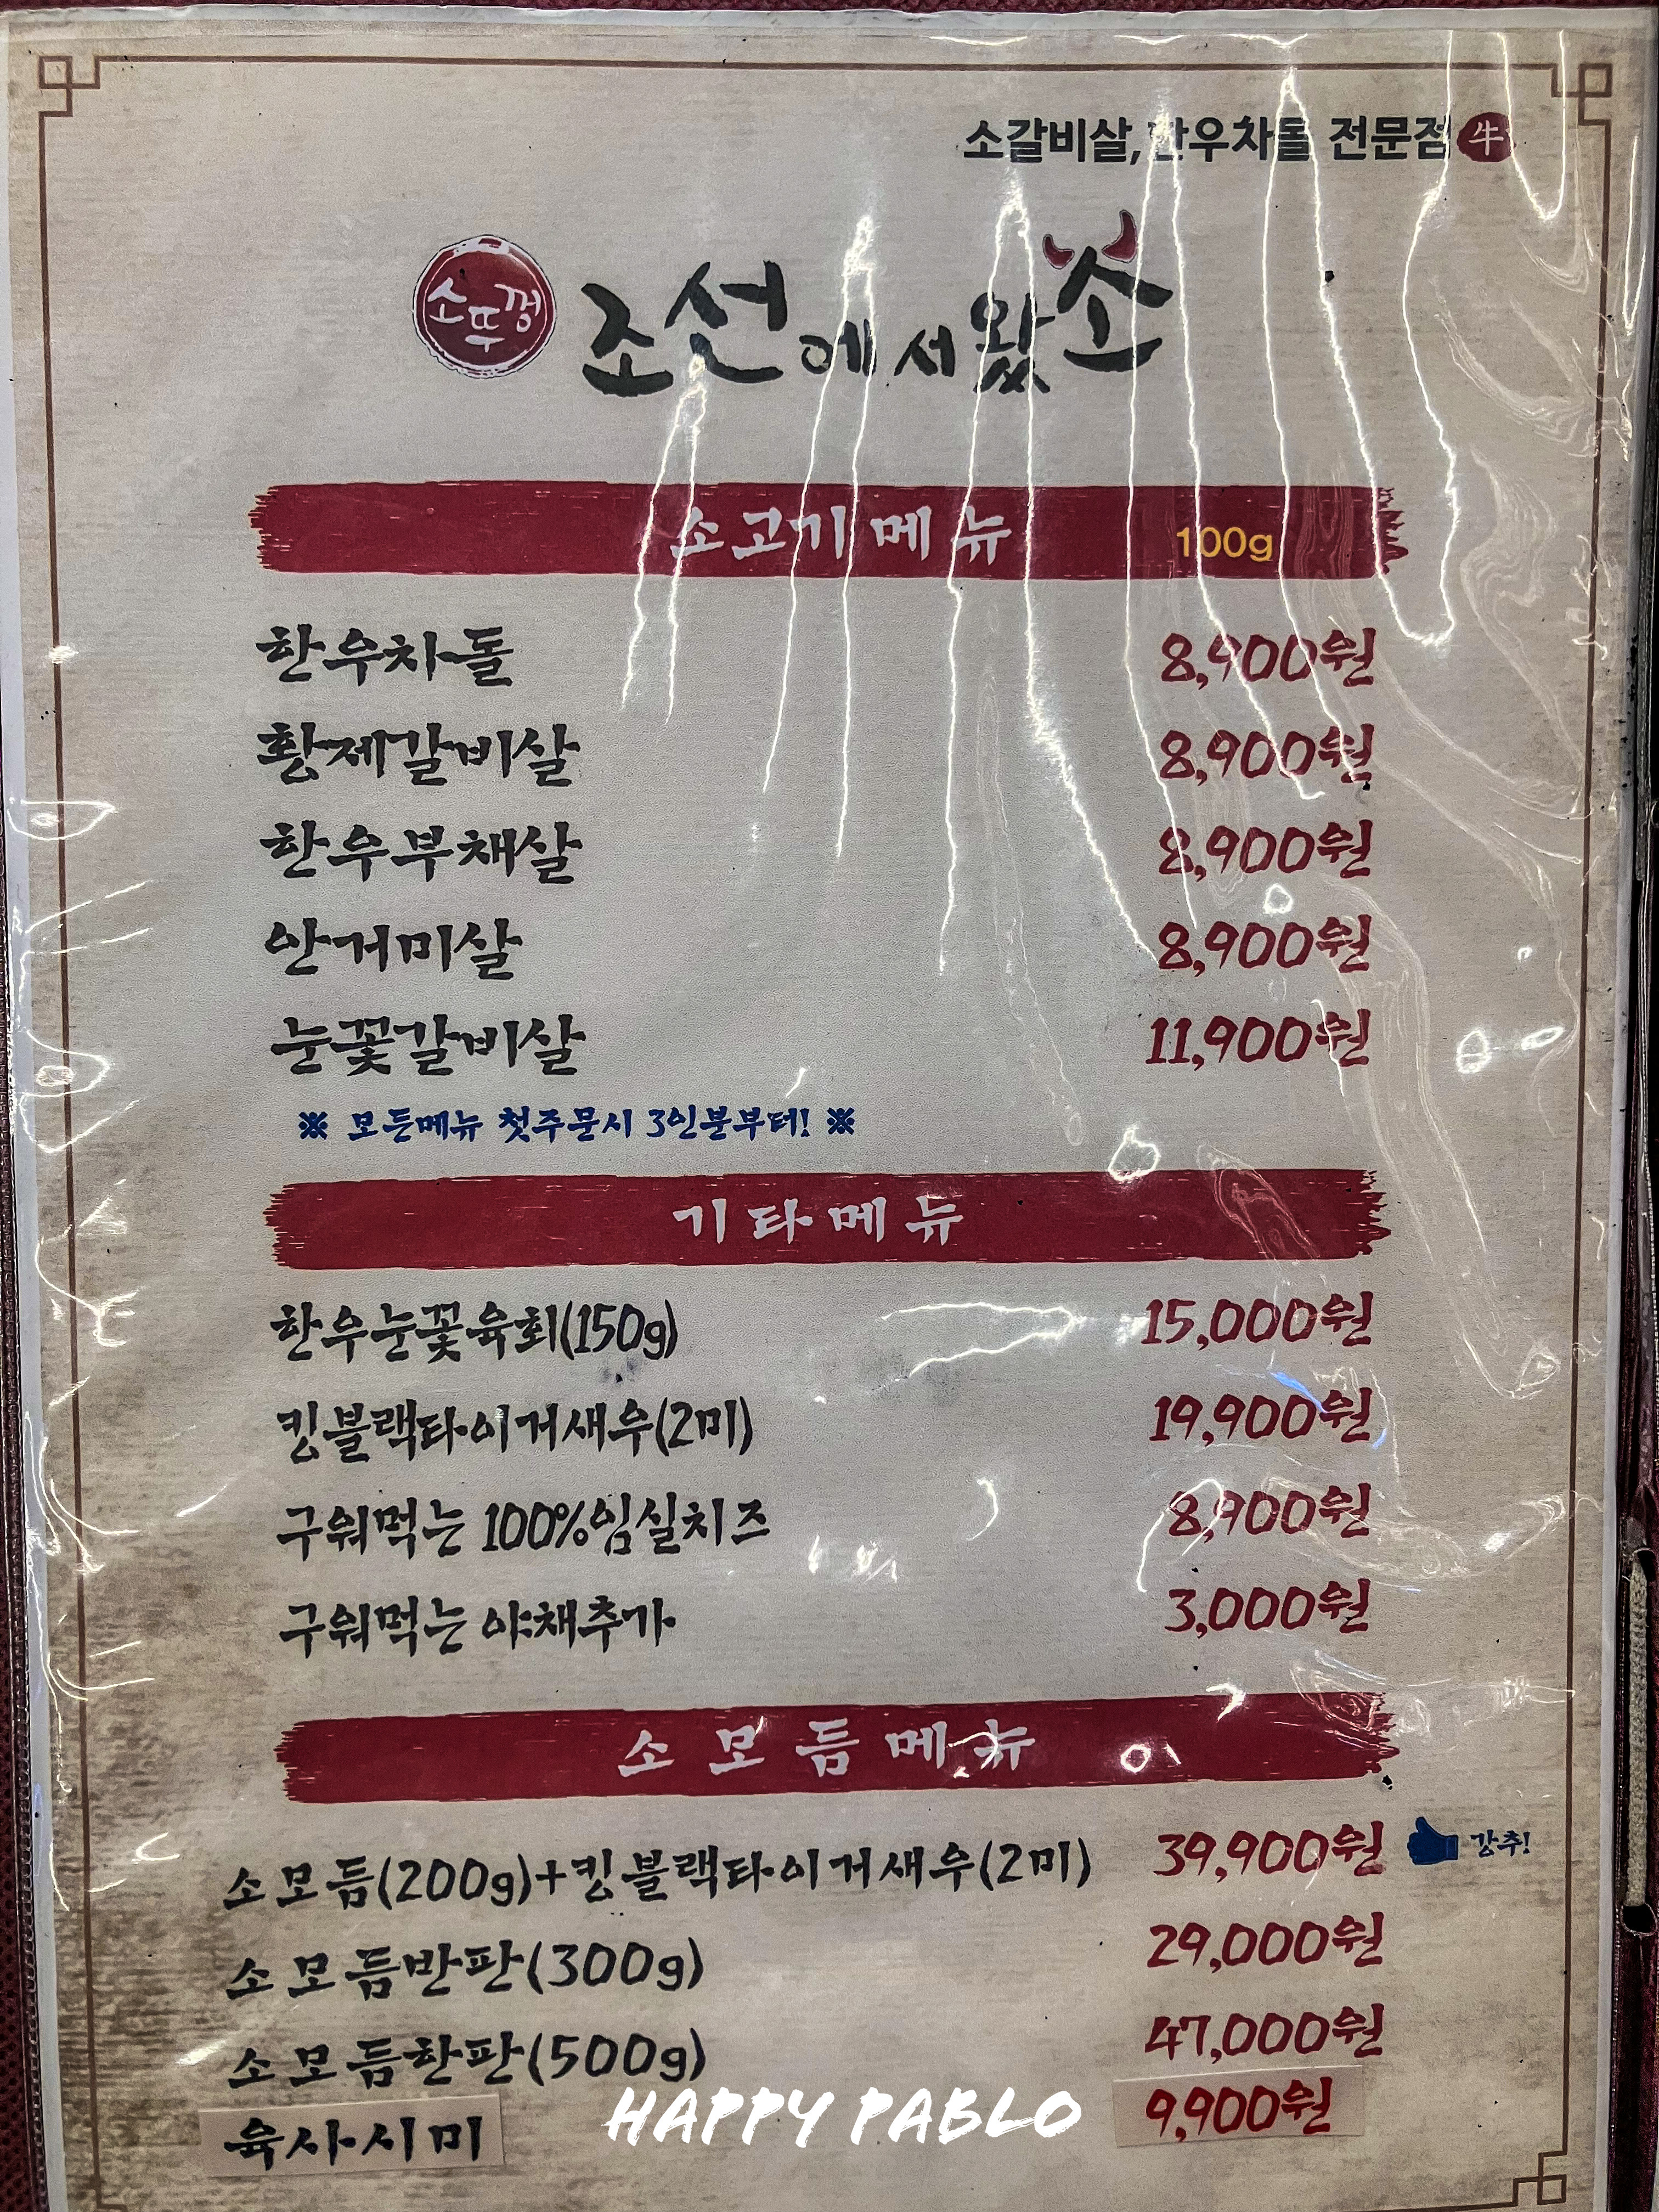 소갈비살, 한우차돌 전문점 牛
소뚜껑 조선에서왔소
소고기메뉴 100g
한우차돌 8,900원
황제갈비살 8,900원
한우부채살 8,900원
안거미살 8,900원
눈꽃갈비살 11,900원
※ 모든메뉴 첫주문시 3인분부터! ※
기타메뉴
한우눈꽃육회(150g) 15,000원
킹블랙타이거새우(2미) 19,900원
구워먹는 100%임실치즈 8,900원
구워먹는 야채추가 3,000원
소모듬메뉴
소모듬(200g)+킹블랙타이거새우(2미) 39,900원 강추!
소모듬반판(300g) 29,000원
소모듬한판(500g) 47,000원
육사시미 9,900원
HAPPY PABLO